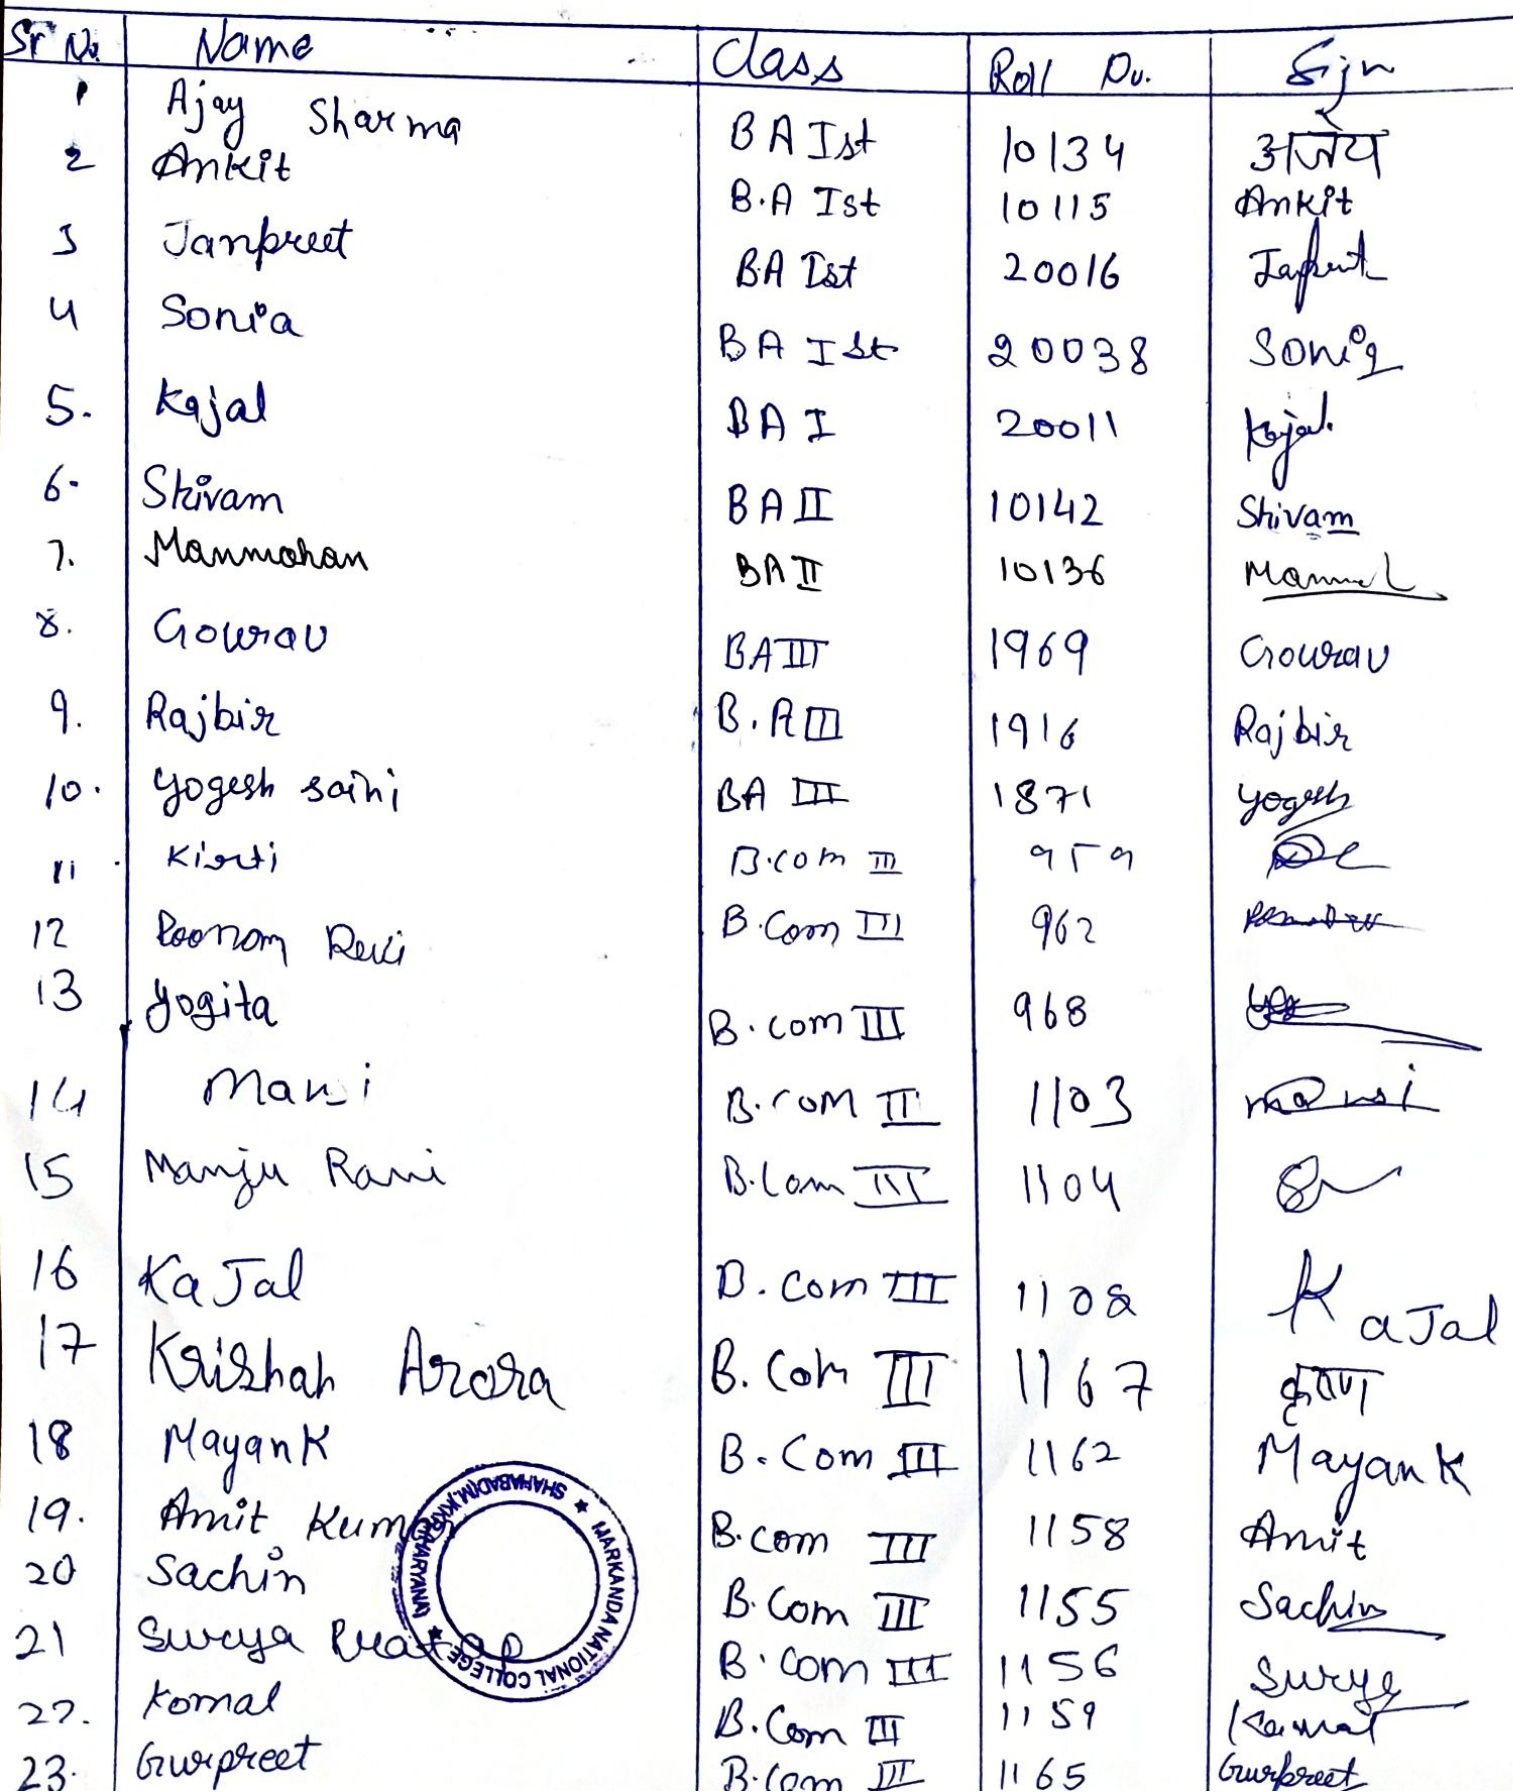 Sr No. Name Class Roll No. Sign
1 Ajay Sharma BA Ist 10134 अजय
2 Ankit B.A Ist 10115 Ankit
3 Janpreet B.A Ist 20016
4 Sonia BA Ist 20038 Sonia
5. Kajal BA I 20011 Kajal.
6. Shivam BA II 10142 Shivam
7. Manmohan BA II 10136
8. Gourav BA III 1969 Gourav
9. Rajbir B.A III 1916 Rajbir
10. Yogesh saini BA III 1871 Yogesh
11 Kirti B.com III 959
12 Poonam Devi B.Com III 962
13 Yogita B.com III 968
14 Mansi B.com II 1103 mansi
15 Manju Rani B.Com III 1104
16 KaJal B.Com III 1108 KaJal
17 Krishan Arora B.Com III 1167 कृष्ण
18 Mayank B.Com III 1162 Mayank
19. Amit Kumar B.com III 1158 Amit
20 Sachin B.Com III 1155 Sachin
21 Surya Pratap B.com III 1156 Surya
22. Komal B.Com III 1159 Komal
23. Gurpreet B.Com III 1165 Gurpreet
MARKANDA NATIONAL COLLEGE ★ SHAHABAD(M.)KKR(HARYANA) ★